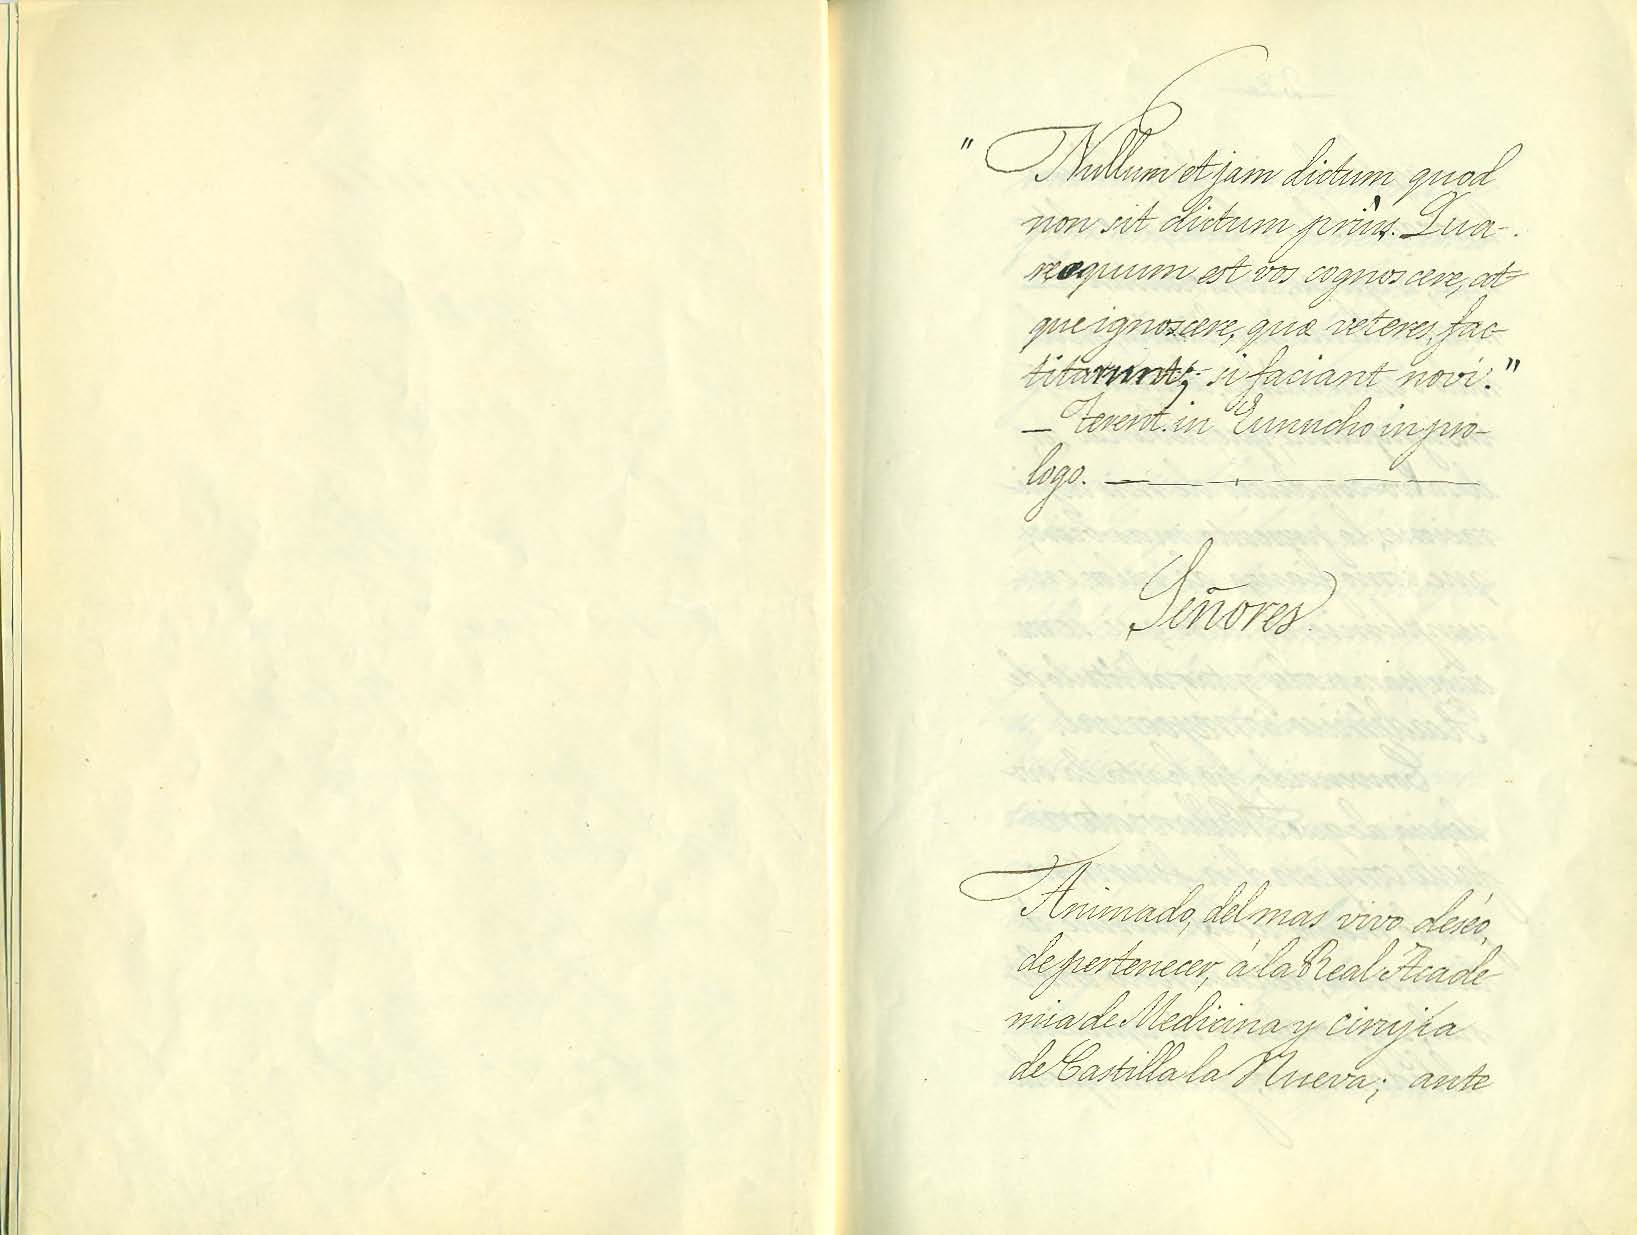 "Nullum et jam dictum quod
non sit dictum priùs. Qua-
re æquum est vos cognoscere, at-
que ignoscere, quæ veteres fac-
titarunt, si faciant novi."
— Terent. in Eunucho in pro-
logo.
Señores.
Animado, del mas vivo deséo,
de pertenecer, á la Real Acade-
mia de Medicina y cirujía
de Castilla la Nueva; ante